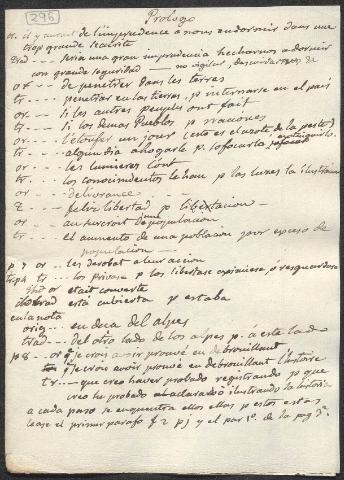 296
Prologo
or. il y auroit de l'imprudence a nous endormir dans une
trop grande securité
trad --- seria una gran imprudencia hecharnos a dormir
con grande seguridad --- no vigilar, descuidarnos de
or --- de penetrer dans les terres
tr --- penetrar en las tierras. p internarse en el pais
or --- si les autres peuples ont fait
tr --- si los demas Pueblos p naciones
or --- l'étouffer un jour (esto es el azote de la peste)
tr --- algun dia ahogarle p. sofocarla extinguirlo
or --- les lumieres l'ont
tr --- los conocimientos le han p las luces la ilustracion
or --- delivrance
t --- feliz libertad p libertacion
or --- au surcroit d'une population
tr --- el aumento de una poblacion por exceso de
poblacion
p 4 or --- les derobat a leur action
trad --- los privase p los libertase p resguardase
or etait couverte
trad --- está cubierta p estaba
en la nota
orig --- en deca del alpes
trad --- del otro lado de los alpes p. a este lado
p 8 -- or je crois avoir prouvé en debrouillant
je crois avoir prouvé en debrouillant l'histoire
tr --- que creo haver probado registrando p que
creo he probado aclarado ó ilustrando la historia
a cada paso se enquentra ellos ellas p estos estas
lease el primer parafo § 2 p j y el par 1º. de la pag 3ª.